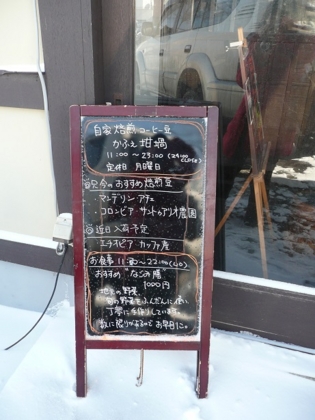 自家焙煎コーヒー豆
かふぇ 坩堝
11:00～23:00 (24:00 CLOSE)
定休日 月曜日
今のおすすめ焙煎豆
・マンデリン・アチェ
・コロンビア・サントゥアリオ農園
近日入荷予定
・エチオピア・カッファ産
お食事 11:30～22:00(L.O)
おすすめ "なごみ膳"
1000円
地元の野菜、
旬の野菜をふんだんに使い
丁寧に手作りしています。
数に限りがあるのでお早目に。